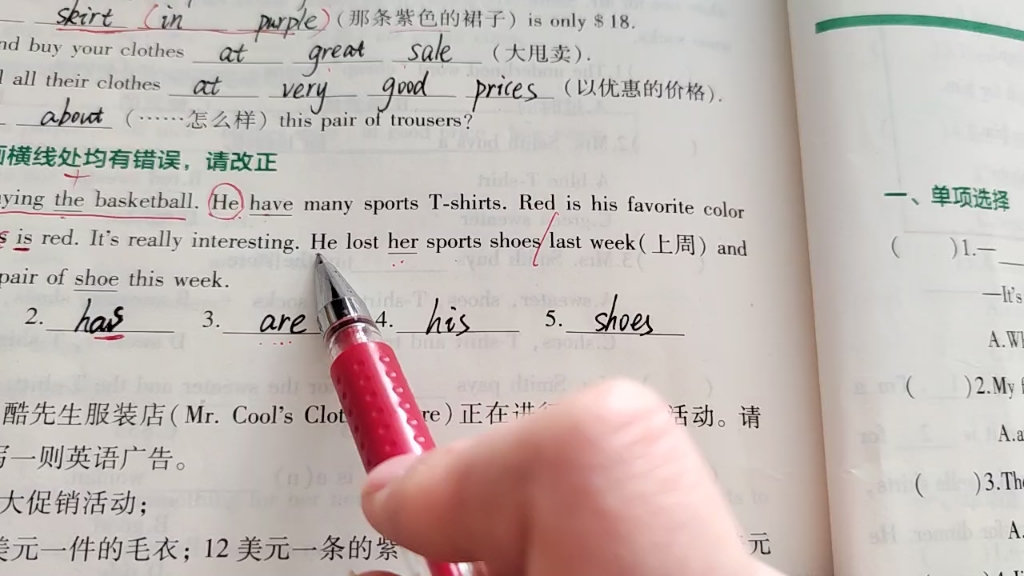 skirt (in purple) (那条紫色的裙子) is only $ 18.
nd buy your clothes at great sale (大甩卖).
all their clothes at very good prices (以优惠的价格).
about (……怎么样) this pair of trousers?
横线处均有错误，请改正
ying the basketball. He have many sports T-shirts. Red is his favorite color
is red. It's really interesting. He lost her sports shoes/last week(上周) and
pair of shoe this week.
2. has 3. are 4. his 5. shoes
酷先生服装店(Mr. Cool's Clot re)正在进 活动。请
写一则英语广告。
大促销活动；
美元一件的毛衣；12 美元一条的紫 元
一、单项选择
( )1.—
—It's
A.W
( )2.My
A.a
( )3.The
A.